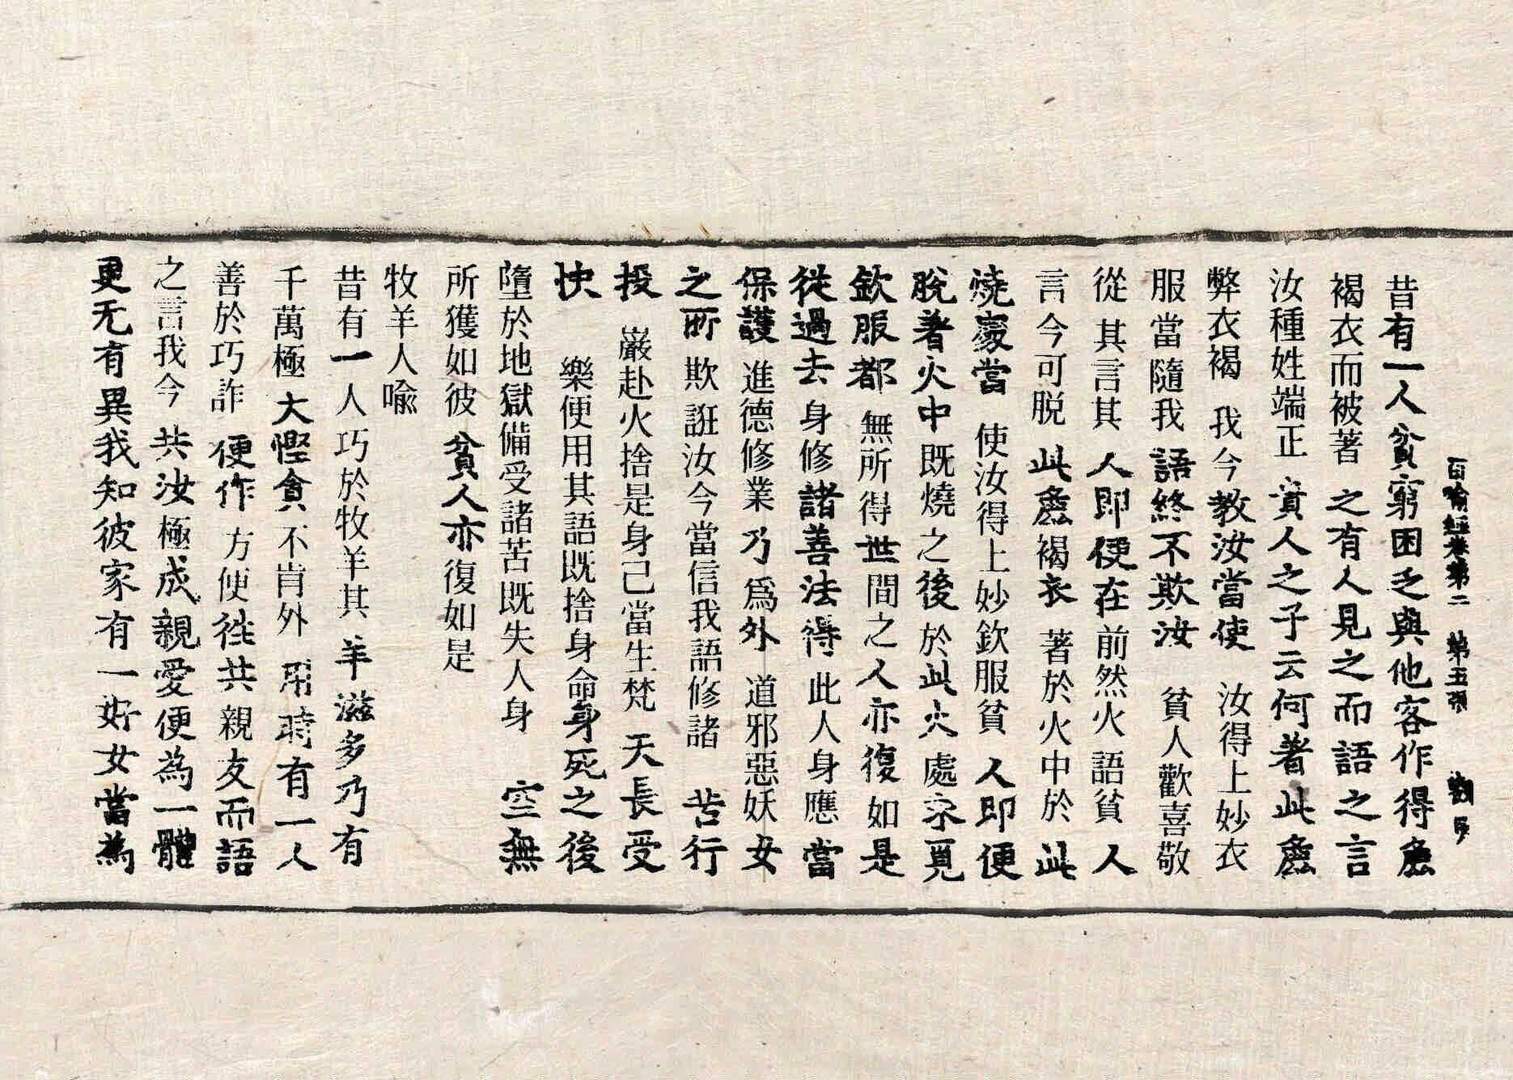 百喻經卷第二 第五張
昔有一人貧窮困乏與他客作得麁
褐衣而被著之有人見之而語之言
汝種姓端正貴人之子云何著此麁
弊衣褐我今教汝當使汝得上妙衣
服當隨我語終不欺汝貧人歡喜敬
從其言其人即便在前然火語貧人
言今可脱此麁褐衣著於火中於此
燒處當使汝得上妙欽服貧人即便
脫著火中既燒之後於此火處求覓
欽服都無所得世間之人亦復如是
從過去身修諸善法得此人身應當
保護進德修業乃爲外道邪惡妖女
之所欺誑汝今當信我語修諸苦行
投巖赴火捨是身己當生梵天長受
快樂便用其語既捨身命身死之後
墮於地獄備受諸苦既失人身空無
所獲如彼貧人亦復如是
牧羊人喩
昔有一人巧於牧羊其羊滋多乃有
千萬極大慳貪不肯外用時有一人
善於巧詐便作方便往共親友而語
之言我今共汝極成親愛便為一體
更无有異我知彼家有一好女當為